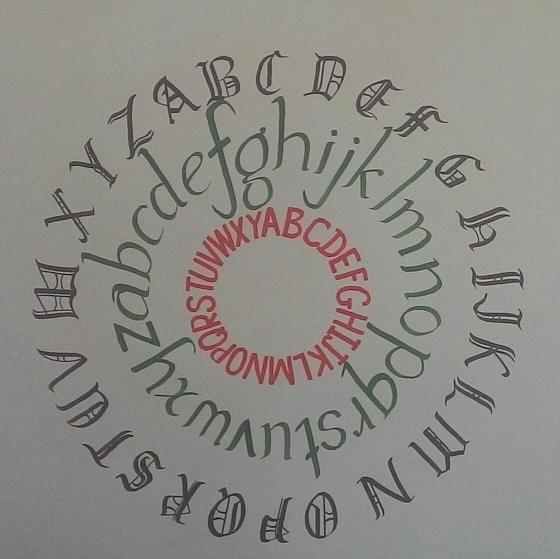 A B C D E F G h I J K L M N O P Q R S T U V W X Y Z
abcdefghijklmnopqrstuvwxyz
ABCDEFGHIJKLMNOPQRSTUVWXY